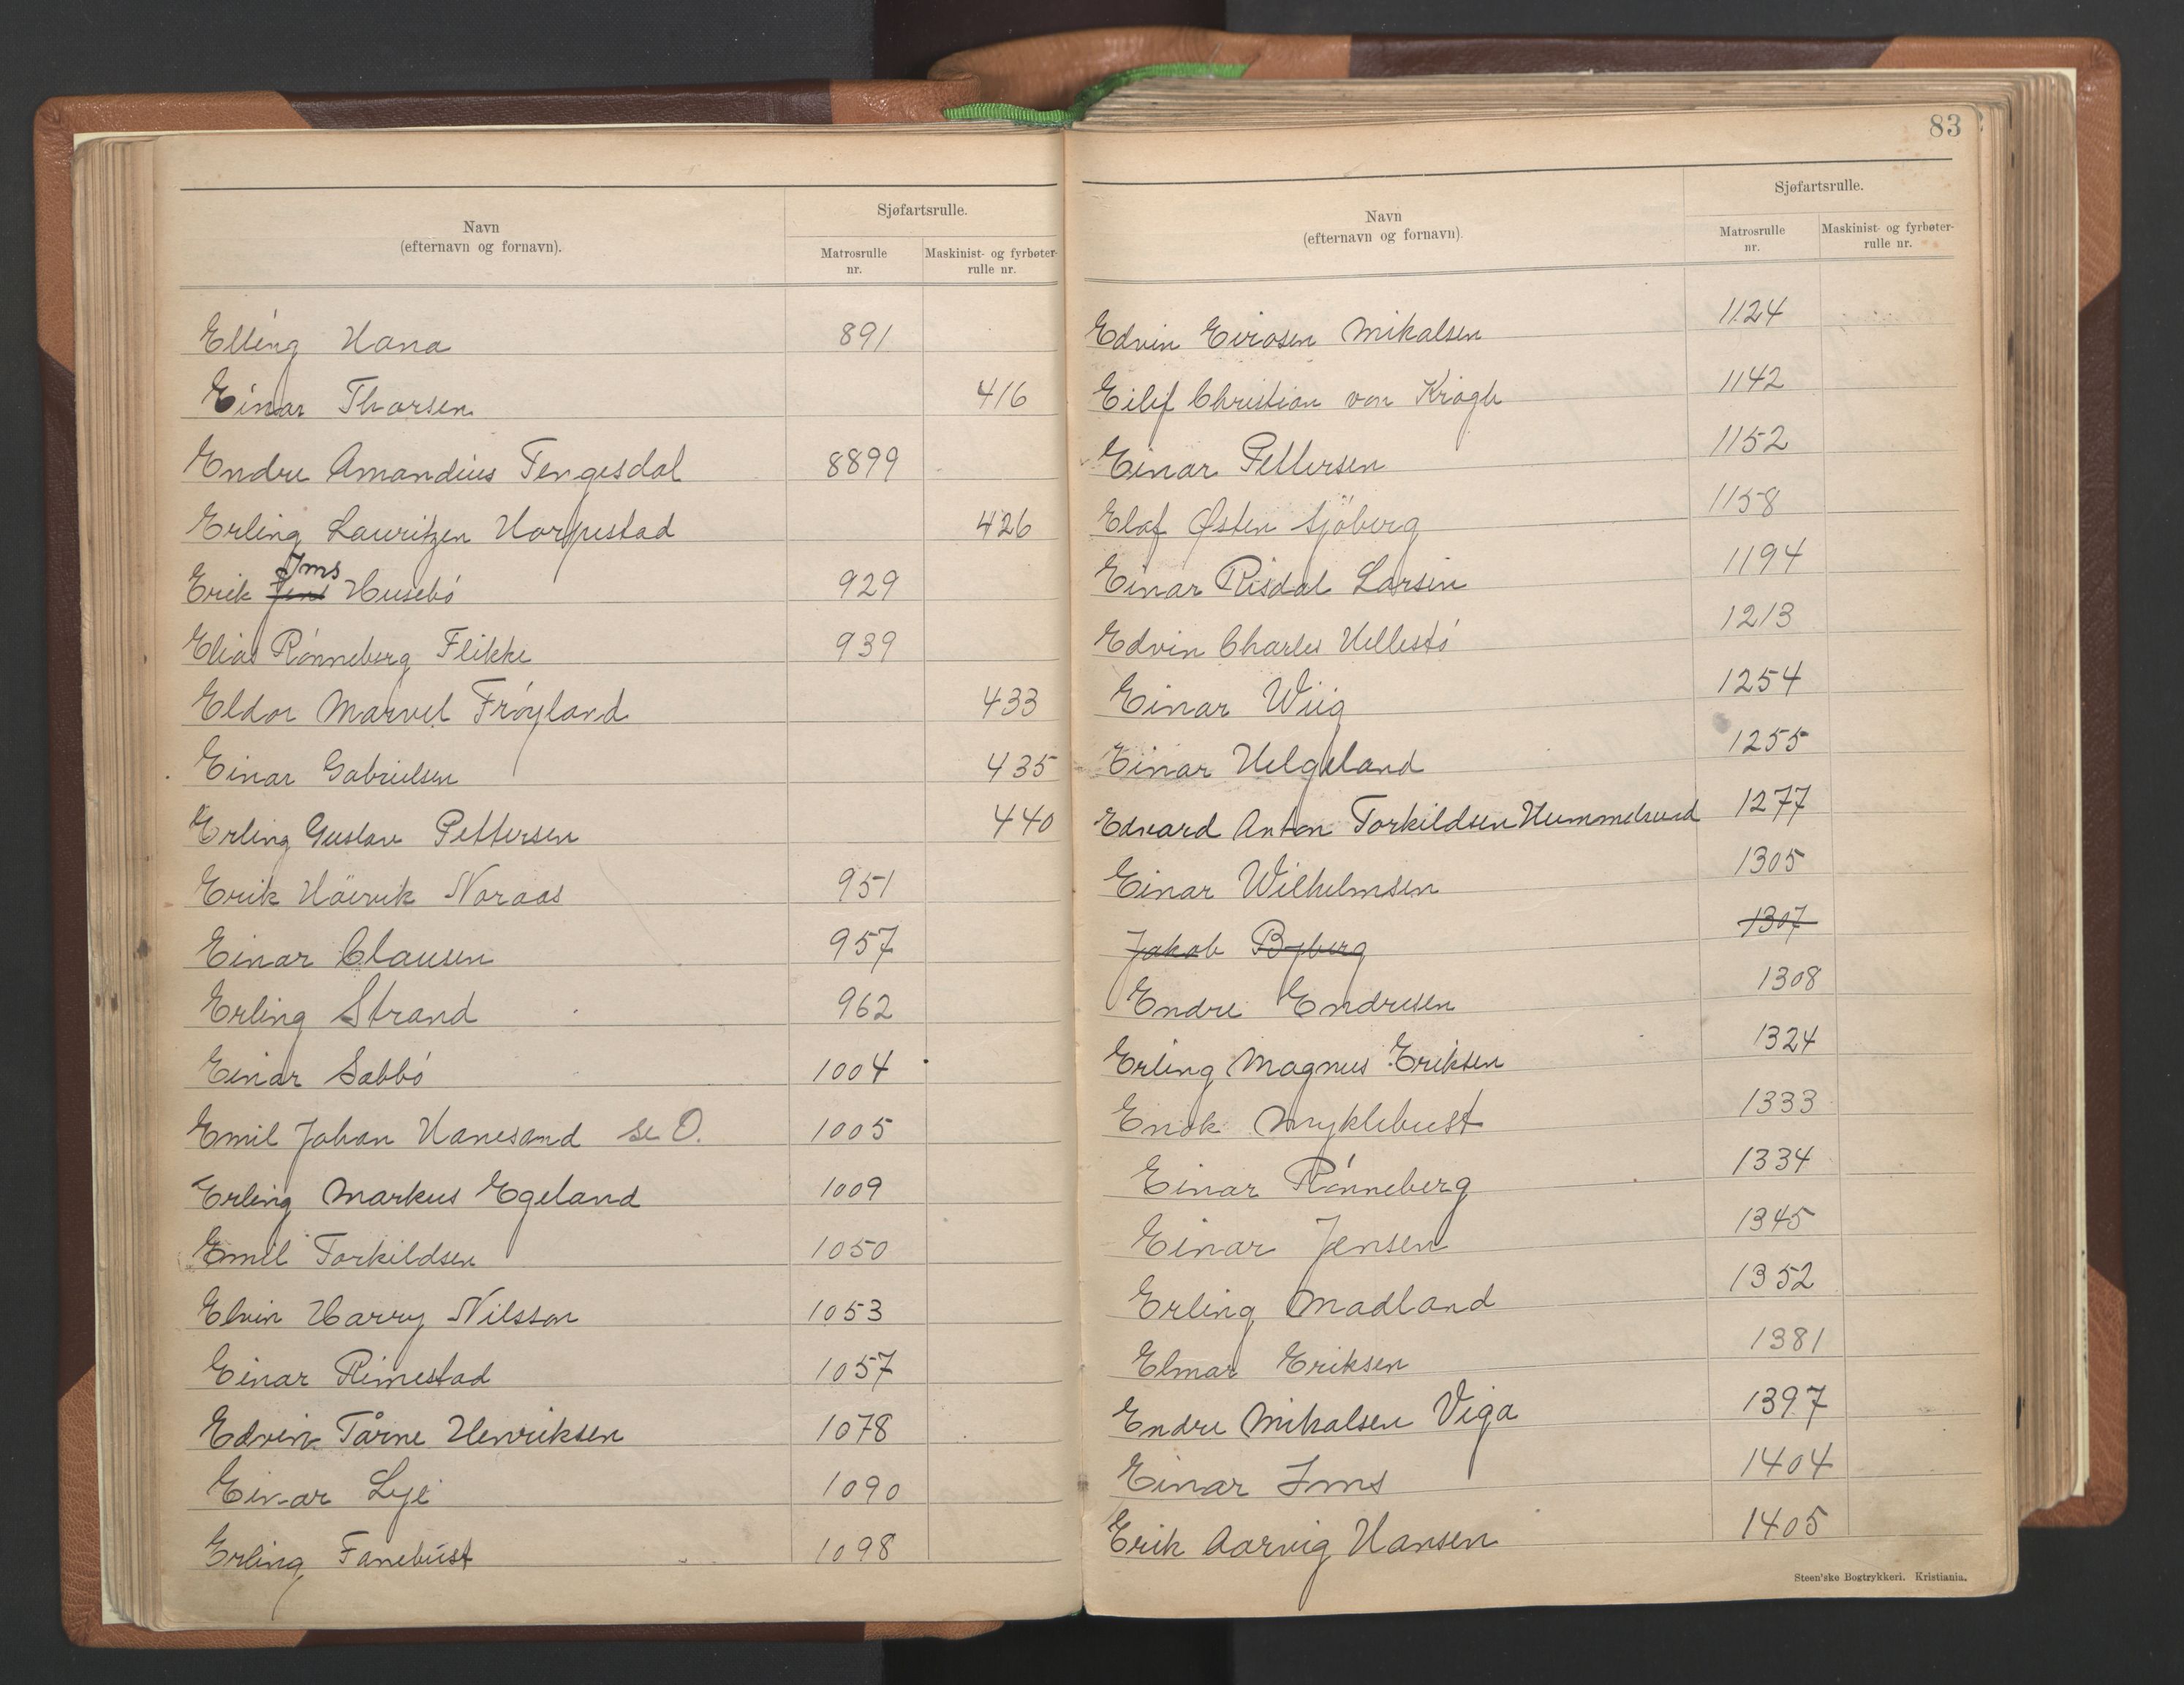 Navn
(efternavn og fornavn).
Sjøfartsrulle.
Matrosrulle nr.
Maskinist- og fyrbøter-rulle nr.
Elling Hana 891
Einar Thorsen 416
Endre Amandius Tengesdal 8899
Erling Lauritzen Harpestad 426
Ims
Erik Jens Husebó 929
Elias Rónneberg Flikke 939
Eldor Marvel Fróyland 433
Einar Gabrielsen 435
Erling Gustav Pettersen 440
Erik Häevik Noraas 951
Einar Clausen 957
Erling Strand 962
Einar Sabbó 1004
Emil Johan Hanesand se O. 1005
Erling Markus Egeland 1009
Emil Torkildsen 1050
Elvin Harry Nilsson 1053
Einar Rimestad 1057
Edvin Tårne Henriksen 1078
Einar Lye 1090
Erling Fanebust 1098
83
Navn
(efternavn og fornavn).
Sjøfartsrulle.
Matrosrulle nr.
Maskinist- og fyrbøter-rulle nr.
Edvin Mikalsen 1124
Eilif Christian von Krogh 1142
Einar Pettersen 1152
Elof Østen Sjöberg 1158
Einar Risdal Larsen 1194
Edvin Charles Hellestó 1213
Einar Wiig 1254
Einar Helgeland 1255
Edvard Anton Torkildsen Hummelsund 1277
Einar Wilhelmsen 1305
Jakob Byberg 1307
Endre Endresen 1308
Erling Magnus Eriksen 1324
Enok Myklebust 1333
Einar Rónneberg 1334
Einar Jensen 1345
Erling Madland 1352
Elmar Eriksen 1381
Endre Mikalsen Viga 1397
Einar Ims 1404
Erik Aarvig Hansen 1405
Steen'ske Bogtrykkeri. Kristiania.